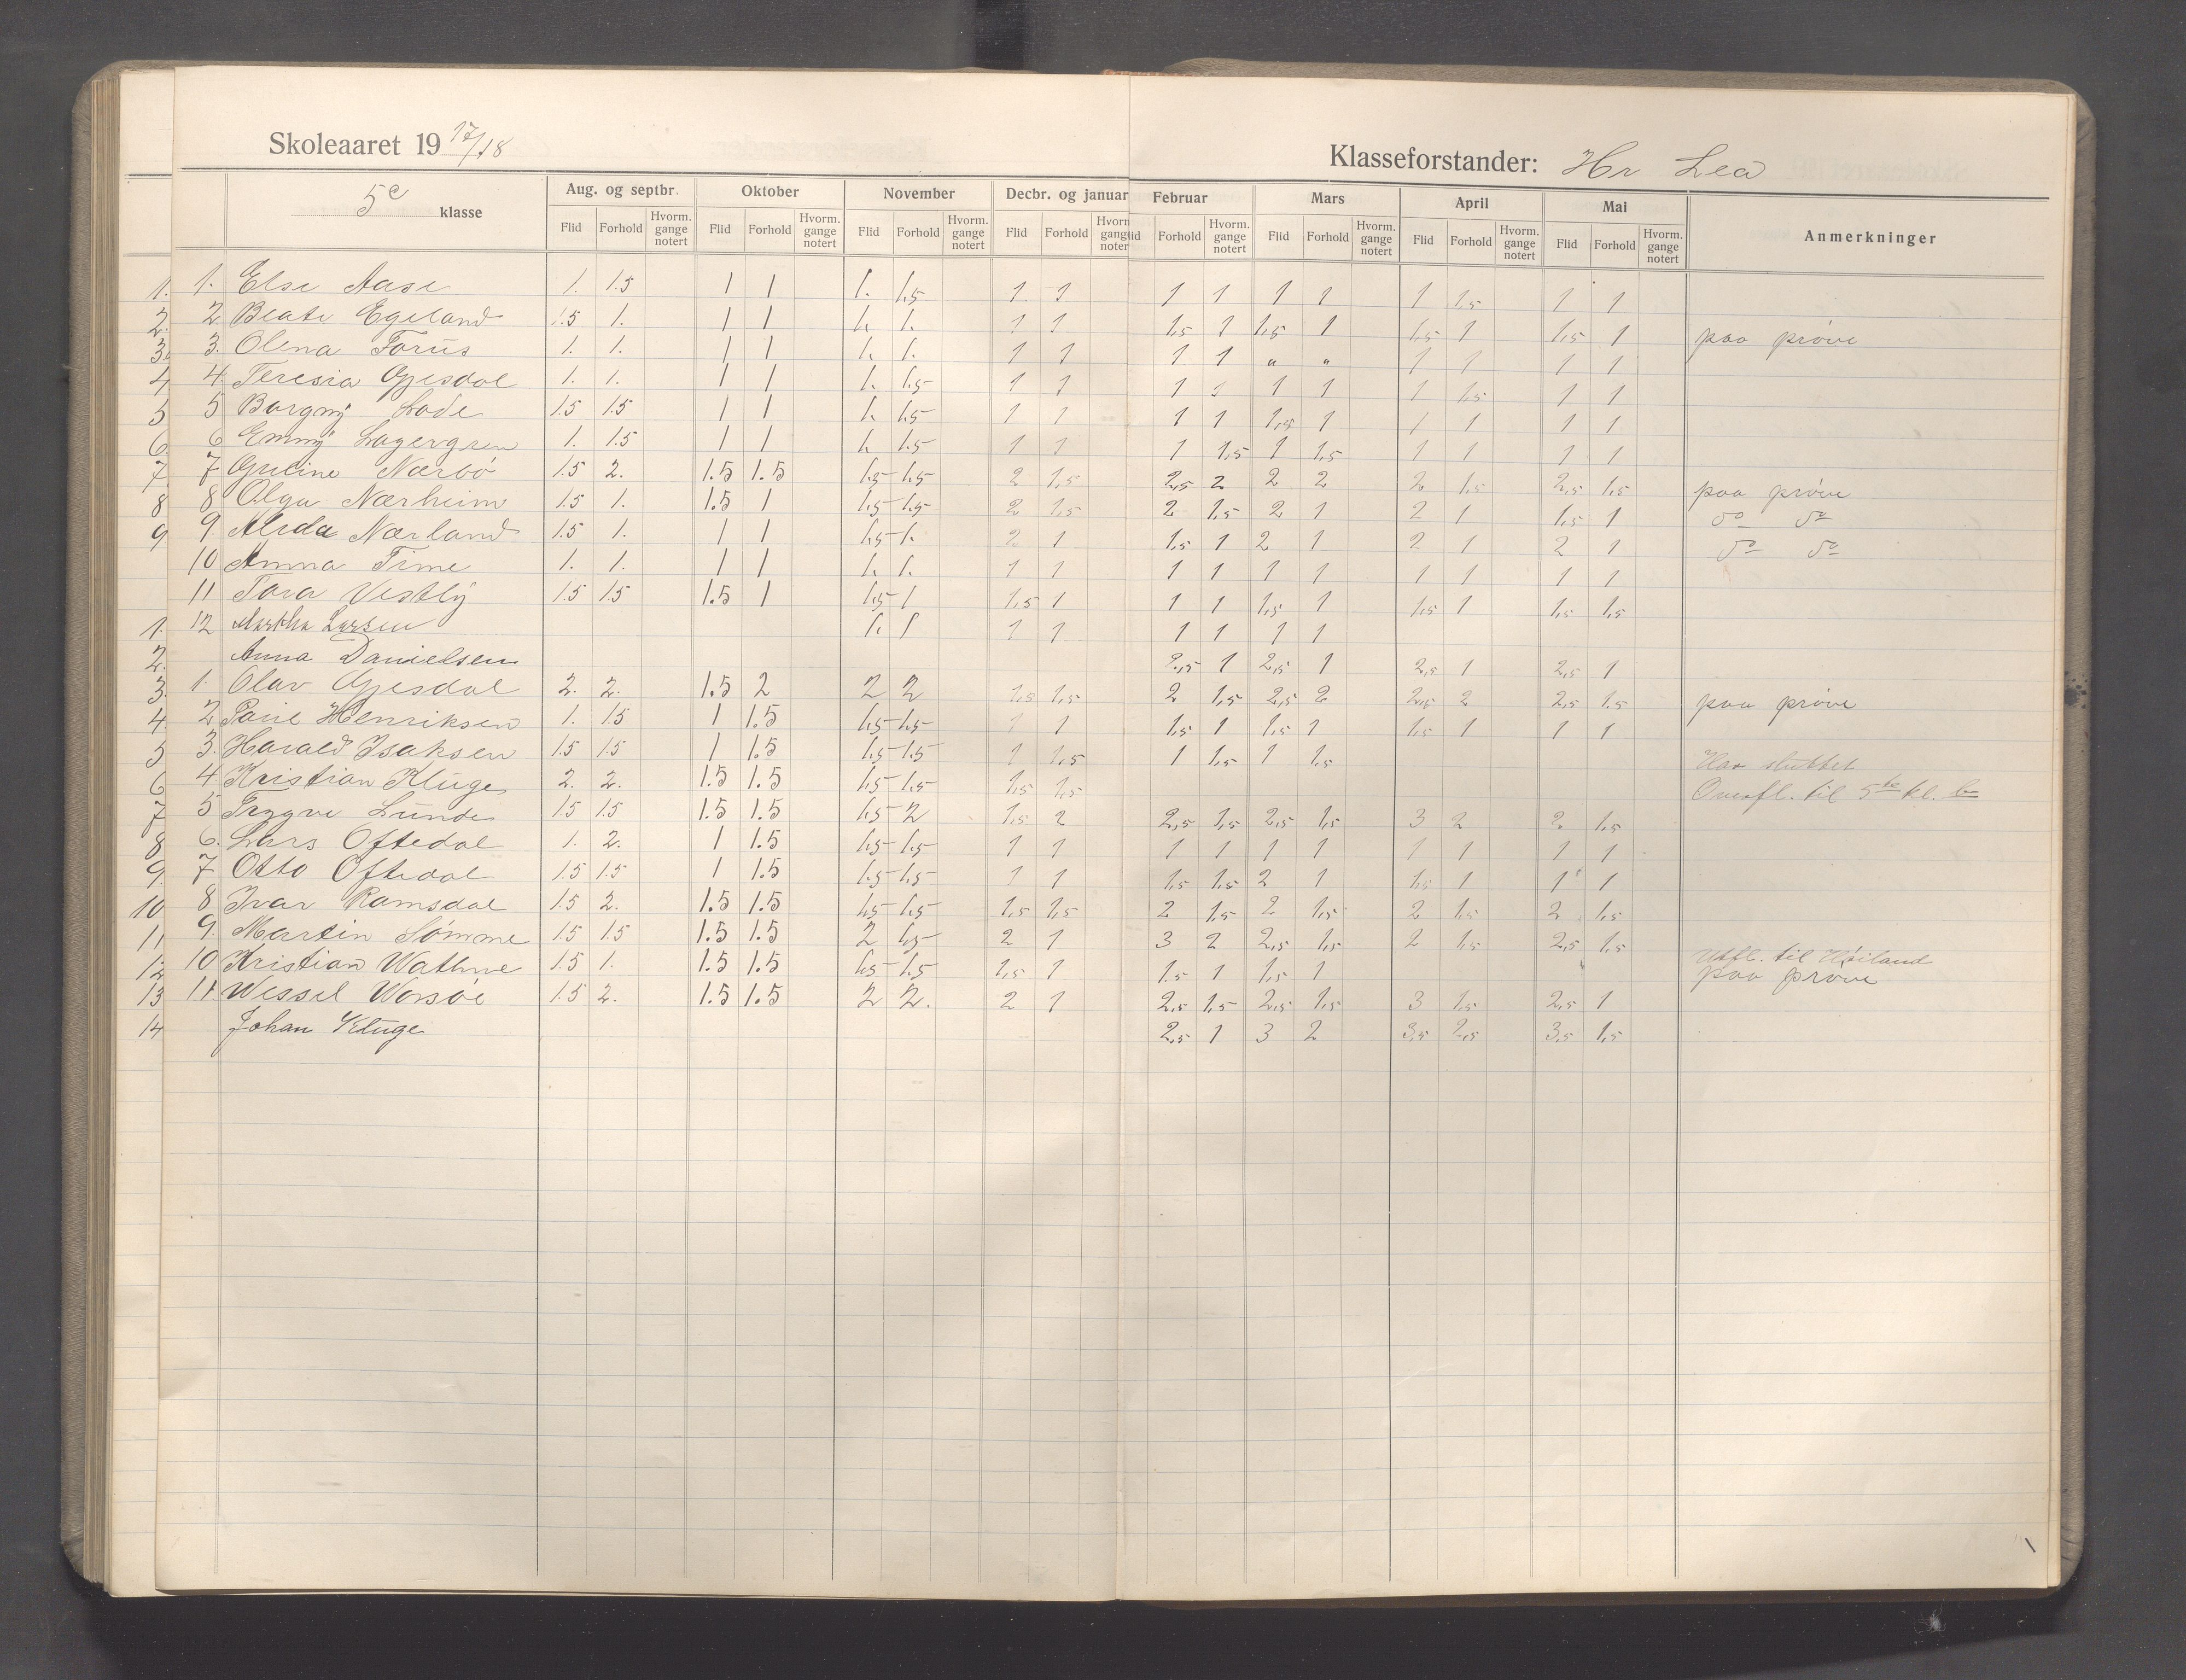 Skoleaaret 19 17/18 Klasseforstander: Hr Lea
5c klasse Aug. og septbr. Oktober November Decbr. og januar Februar Mars April Mai Anmerkninger
Flid Forhold Hvorm. gange notert Flid Forhold Hvorm. gange notert Flid Forhold Hvorm. gange notert Flid Forhold Forhold Hvorm. gange notert Flid Forhold Hvorm. gange notert Flid Forhold Hvorm. gange notert Flid Forhold Hvorm. gange notert
1. 1. Else Aase 1. 1.5 1 1 1. 1.5 1 1 1 1 1 1 1 1,5 1 1
2. 2 Beate Egeland 1.5 1. 1 1 1. 1. 1 1 1,5 1 1,5 1 1,5 1 1,5 1 paa prøve
3. 3. Olena Forus 1. 1. 1 1 1. 1. 1 1 1 1 " " 1 1 1 1
4 4. Teresia Gjesdal 1. 1. 1 1 1. 1.5 1 1 1 1 1 1 1 1,5 1 1
5 5 Borgny Lode 1.5 1.5 1 1 1. 1.5 1 1 1 1 1,5 1 1 1 1 1
6. 6 Emmy Lagergren 1. 1.5 1 1 1. 1.5 1 1 1 1,5 1 1,5 1 1 1 1
7 7 Nærbø 1.5 2. 1.5 1.5 1.5 1.5 2 1,5 2,5 2 2 2 2 1,5 2,5 1,5 paa prøve
8 8 Olga Nærheim 1.5 1. 1.5 1 1.5 1.5 2 1,5 2 1,5 2 1 2 1 1,5 1 do do
9 9. Alida Nærland 1.5 1. 1 1 1.5 1. 2 1 1,5 1 2 1 2 1 2 1 do do
10 Anna Time 1. 1. 1 1 1. 1. 1 1 1 1 1 1 1 1 1 1
11 Tora Vestly 1.5 1.5 1.5 1 1.5 1 1,5 1 1 1 1,5 1 1,5 1 1,5 1,5
1. 12 Martha Larsen 1. 1 1 1 1 1 1 1
2. Anna Danielsen 2,5 1 2,5 1 2,5 1 2,5 1
3. 1. Olav Gjesdal 2. 2. 1.5 2 2 2 1,5 1,5 2 1,5 2,5 2 2,5 2 2,5 1,5 paa prøve
4. 2 Henriksen 1. 1.5 1 1.5 1.5 1.5 1 1 1,5 1 1,5 1 1,5 1 1 1
5 3. Harald Isaksen 1.5 1.5 1 1.5 1.5 1.5 1 1,5 1 1,5 1 1,5 Har sluttet
6 4. Kristian Kluge 2. 2. 1.5 1.5 1.5 1.5 1,5 1,5 Overfl. til 5te kl. b
7 5 Trygve Lunde 1.5 1.5 1.5 1.5 1.5 2 1,5 2 2,5 1,5 2,5 1,5 3 2 2 1,5
8 6. Lars Oftedal 1. 2. 1 1.5 1.5 1.5 1 1 1 1 1 1 1 1 1 1
9. 7 Otto Oftedal 1.5 1.5 1 1.5 1.5 1.5 1 1 1,5 1,5 2 1 1,5 1 1 1
10 8 Ivar Ramsdal 1.5 2. 1.5 1.5 1.5 1.5 1,5 1,5 2 1,5 2 1,5 2 1,5 2 1,5
11 9. Martin Sømme 1.5 1.5 1.5 1.5 2 1.5 2 1 3 2 2,5 1,5 2 1,5 2,5 1,5
12 10 Kristian Wathne 1.5 1. 1.5 1.5 1.5 1.5 1,5 1 1.5 1 1,5 1 Utfl. til Høiland
13 11. Wessel Worsøe 1.5 2. 1.5 1.5 2 2. 2 1 2,5 1,5 2,5 1,5 3 1,5 2,5 1 paa prøve
14 Johan Kluge 2,5 1 3 2 3,5 2,5 3,5 1,5